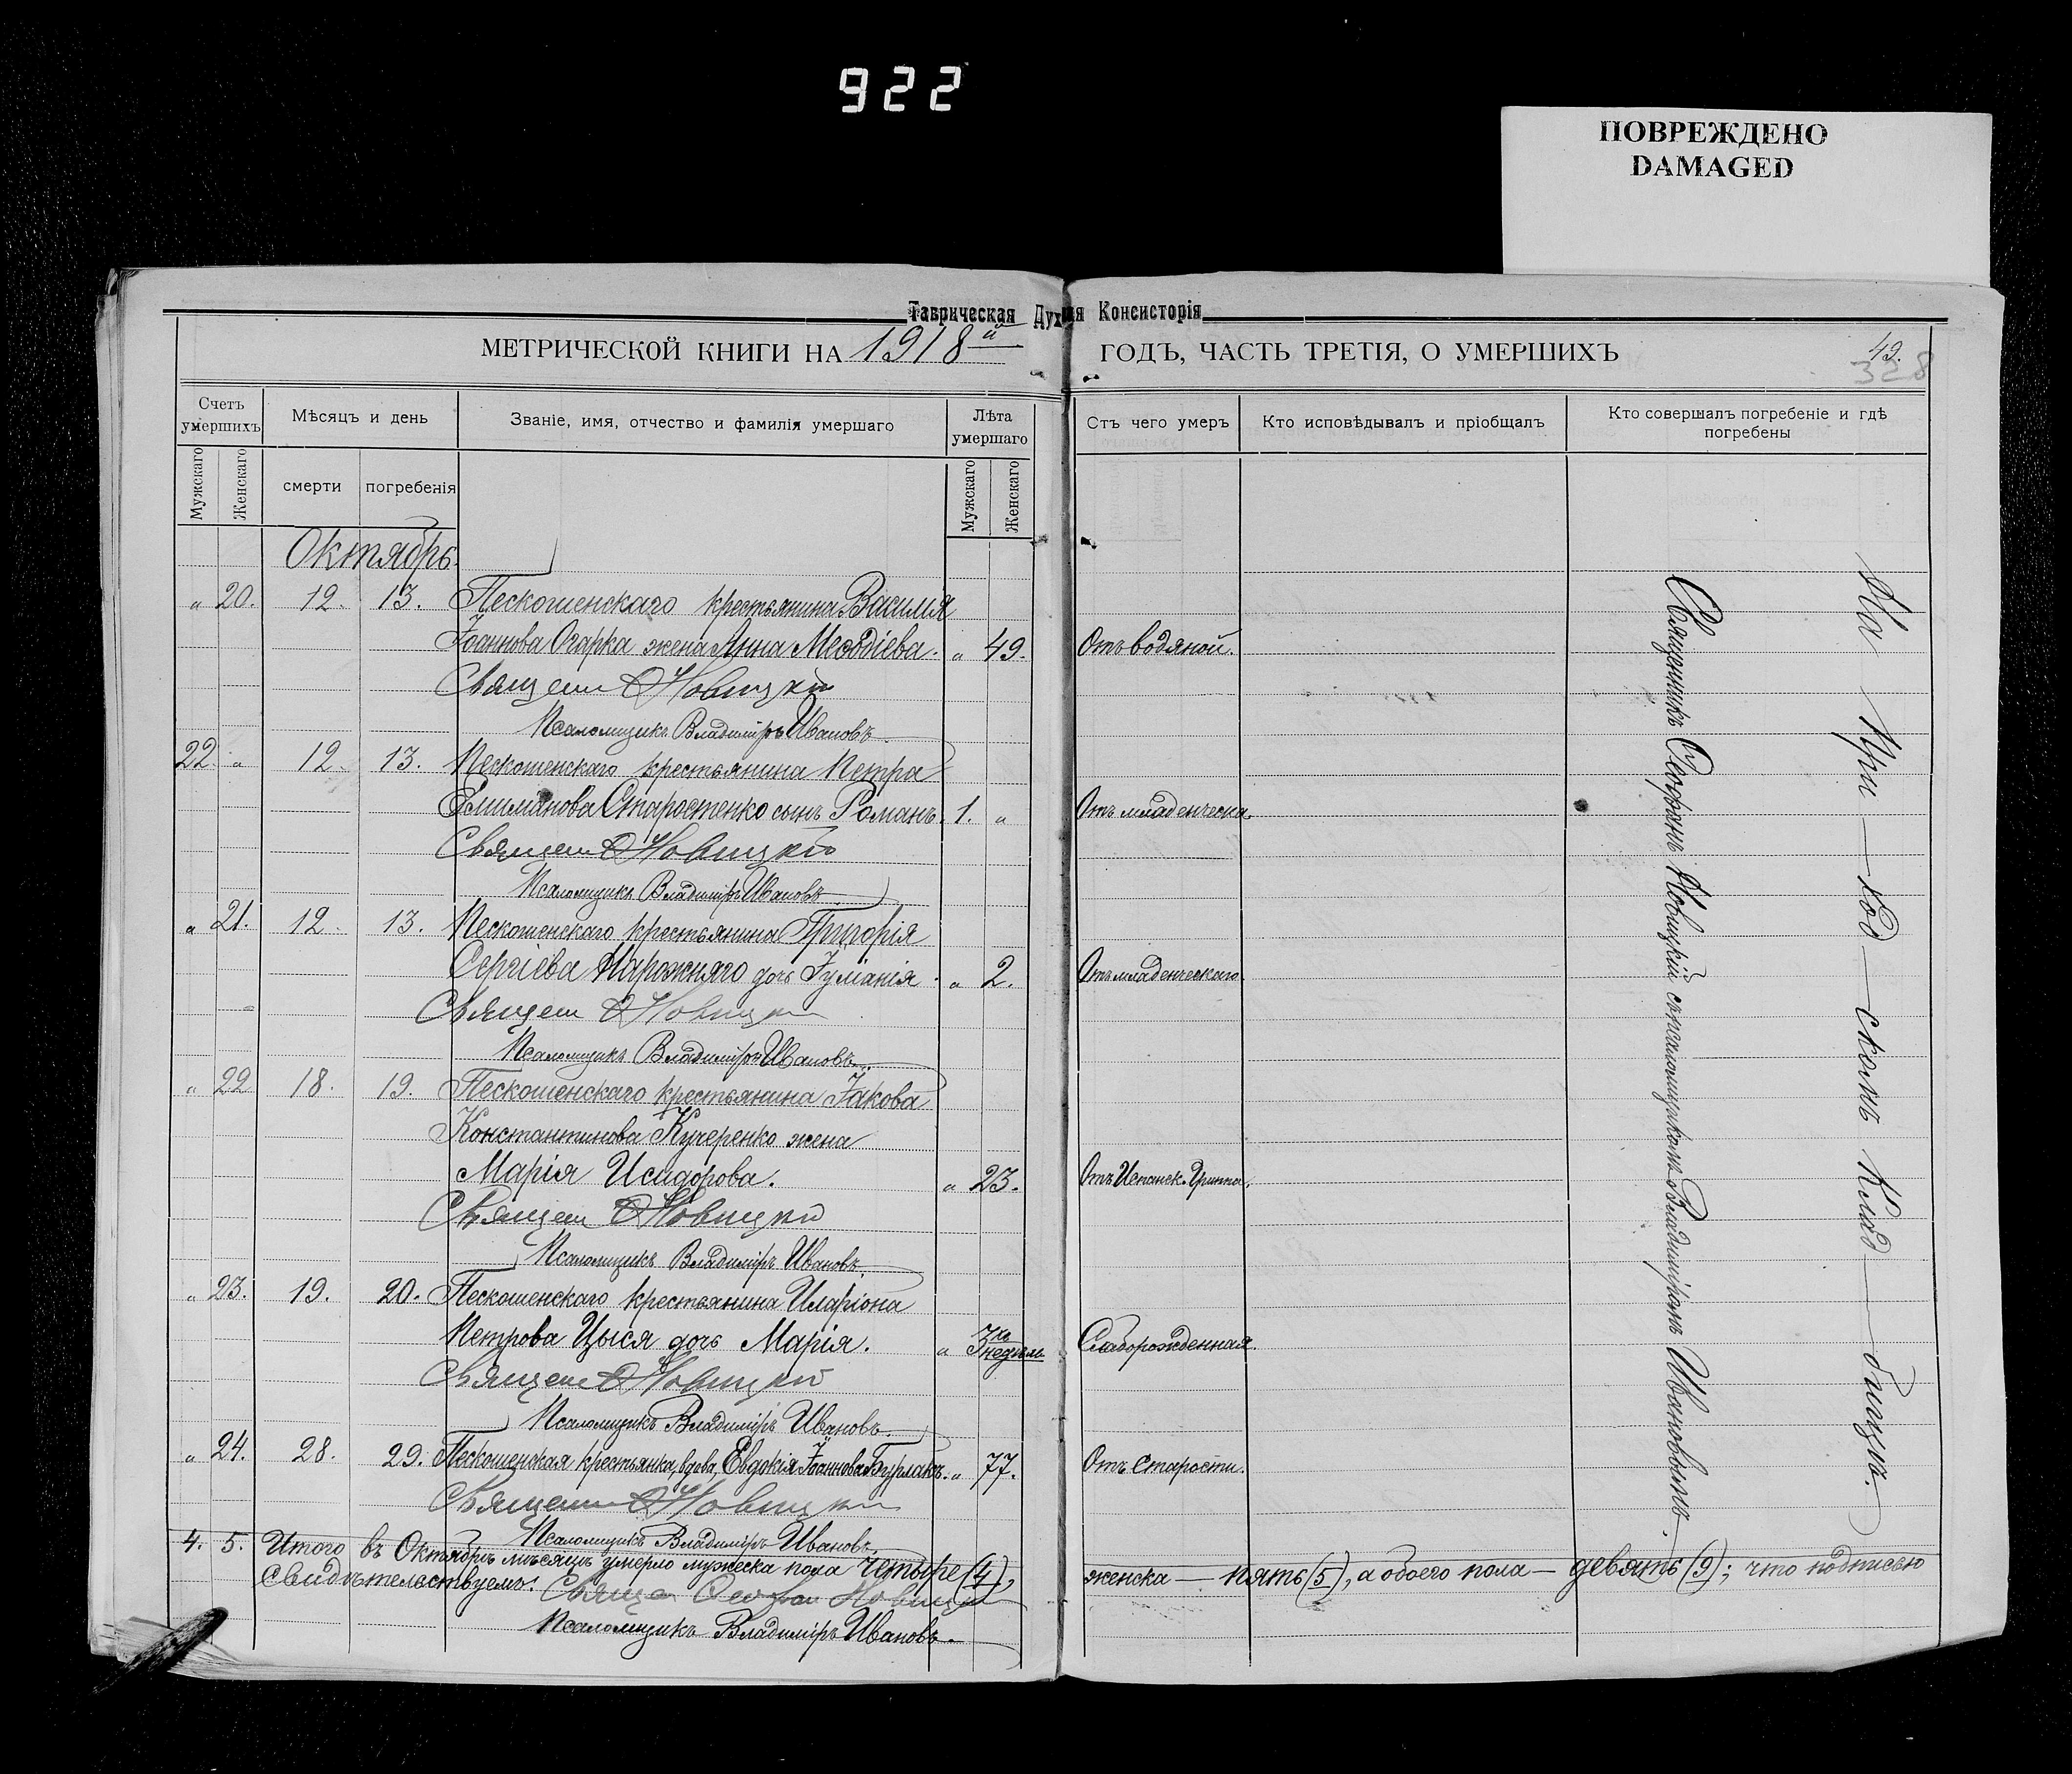 922
ПОВРЕЖДЕНО
DAMAGED
Таврическая Дух ия Консисторія
МЕТРИЧЕСКОЙ КНИГИ НА 1918й ГОДЪ, ЧАСТЬ ТРЕТІЯ, О УМЕРШИХЪ
49.
328
Счетъ умершихъ
Мѣсяцъ и день
Званіе, имя, отчество и фамилія умершаго
Лѣта умершаго
Отъ чего умеръ
Кто исповѣдывалъ и пріобщалъ
Кто совершалъ погребеніе и гдѣ погребены
Мужскаго Женскаго смерти погребенія Мужскаго Женскаго
Октябрь.
" 20. 12. 13. Пескошенскаго крестьянина Василія
Іоаннова Огарка жена Анна Меѳодіева. " 49. Отъ водяной.
Священ Ѳ Новицкій
Псаломщикъ Владиміръ Ивановъ.
22. " 12. 13. Пескошенскаго крестьянина Петра
Старостенко сынъ Романъ. 1. " Отъ младенческа.
Священ Ѳ Новицкій
Псаломщикъ Владиміръ Ивановъ.
" 21. 12. 13. Пескошенскаго крестьянина Григорія
Сергіева Нарожняго дочь Іуліанія. " 2. Отъ младенческаго.
Священ Ѳ Новицкій
Псаломщикъ Владиміръ Ивановъ.
" 22 18. 19. Пескошенскаго крестьянина Іакова
Константинова Кучеренко жена
Марія Исидорова. " 23. Отъ Испанск. Гриппа.
Священ Ѳ Новицкій
Псаломщикъ Владиміръ Ивановъ.
" 23. 19. 20. Пескошенскаго крестьянина Иларіона
Петрова Цыся дочь Марія. " недѣль Слаборожденная.
Священ Ѳ Новицкій
Псаломщикъ Владиміръ Ивановъ.
" 24. 28. 29. Пескошенская крестьянка, вдова, Евдокія Іоаннова Бурлакъ. " 77. Отъ старости.
Священ Ѳ Новицкій
Псаломщикъ Владиміръ Ивановъ.
4. 5. Итого въ Октябрѣ мѣсяцѣ умерло мужеска пола четыре (4), женска — пять (5), а обоего пола — девять (9); что подписью
свидѣтельствуемъ. Священ Ѳеофан Новицкій
Псаломщикъ Владиміръ Ивановъ.
Священникъ Ѳеофанъ Новицкій съ псаломщикомъ Владиміромъ Ивановымъ.
На При — ход — скомъ Клад — бищѣ.